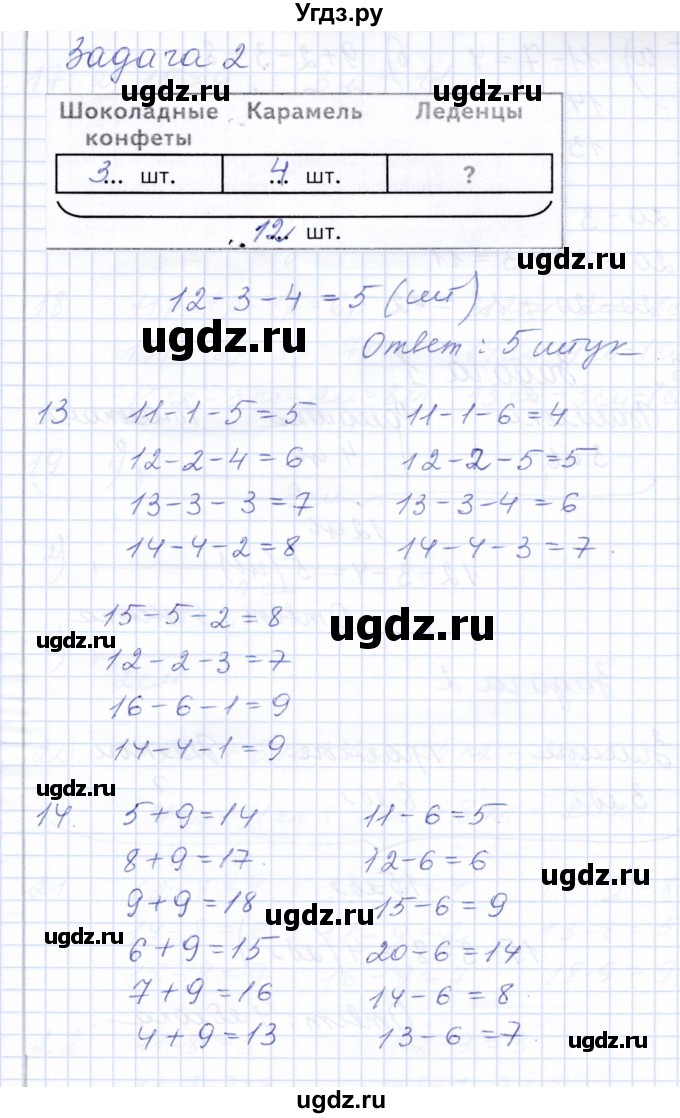 Угдз.ру
Задача 2.
ugdz.ru ugdz.ru
Шоколадные конфеты Карамель Леденцы
3... шт. 4... шт. ?
12... шт.
ugdz.ru
12-3-4=5 (шт)
ugdz.ru
Ответ: 5 штук
13 11-1-5=5 11-1-6=4
12-2-4=6 12-2-5=5
13-3-3=7 13-3-4=6
14-4-2=8 14-4-3=7
15-5-2=8
ugdz.ru ugdz.ru
12-2-3=7
16-6-1=9
14-4-1=9
ugdz.ru
14. 5+9=14 11-6=5
8+9=17 12-6=6
ugdz.ru
9+9=18 15-6=9
ugdz.ru
ugdz.ru
6+9=15 20-6=14
7+9=16 14-6=8
4+9=13 13-6=7
ugdz.ru
ugdz.ru